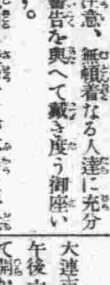 注意、無頓着なる人達に充分
警告を與へて戴き度う御座い
す。
大連
午後
て開